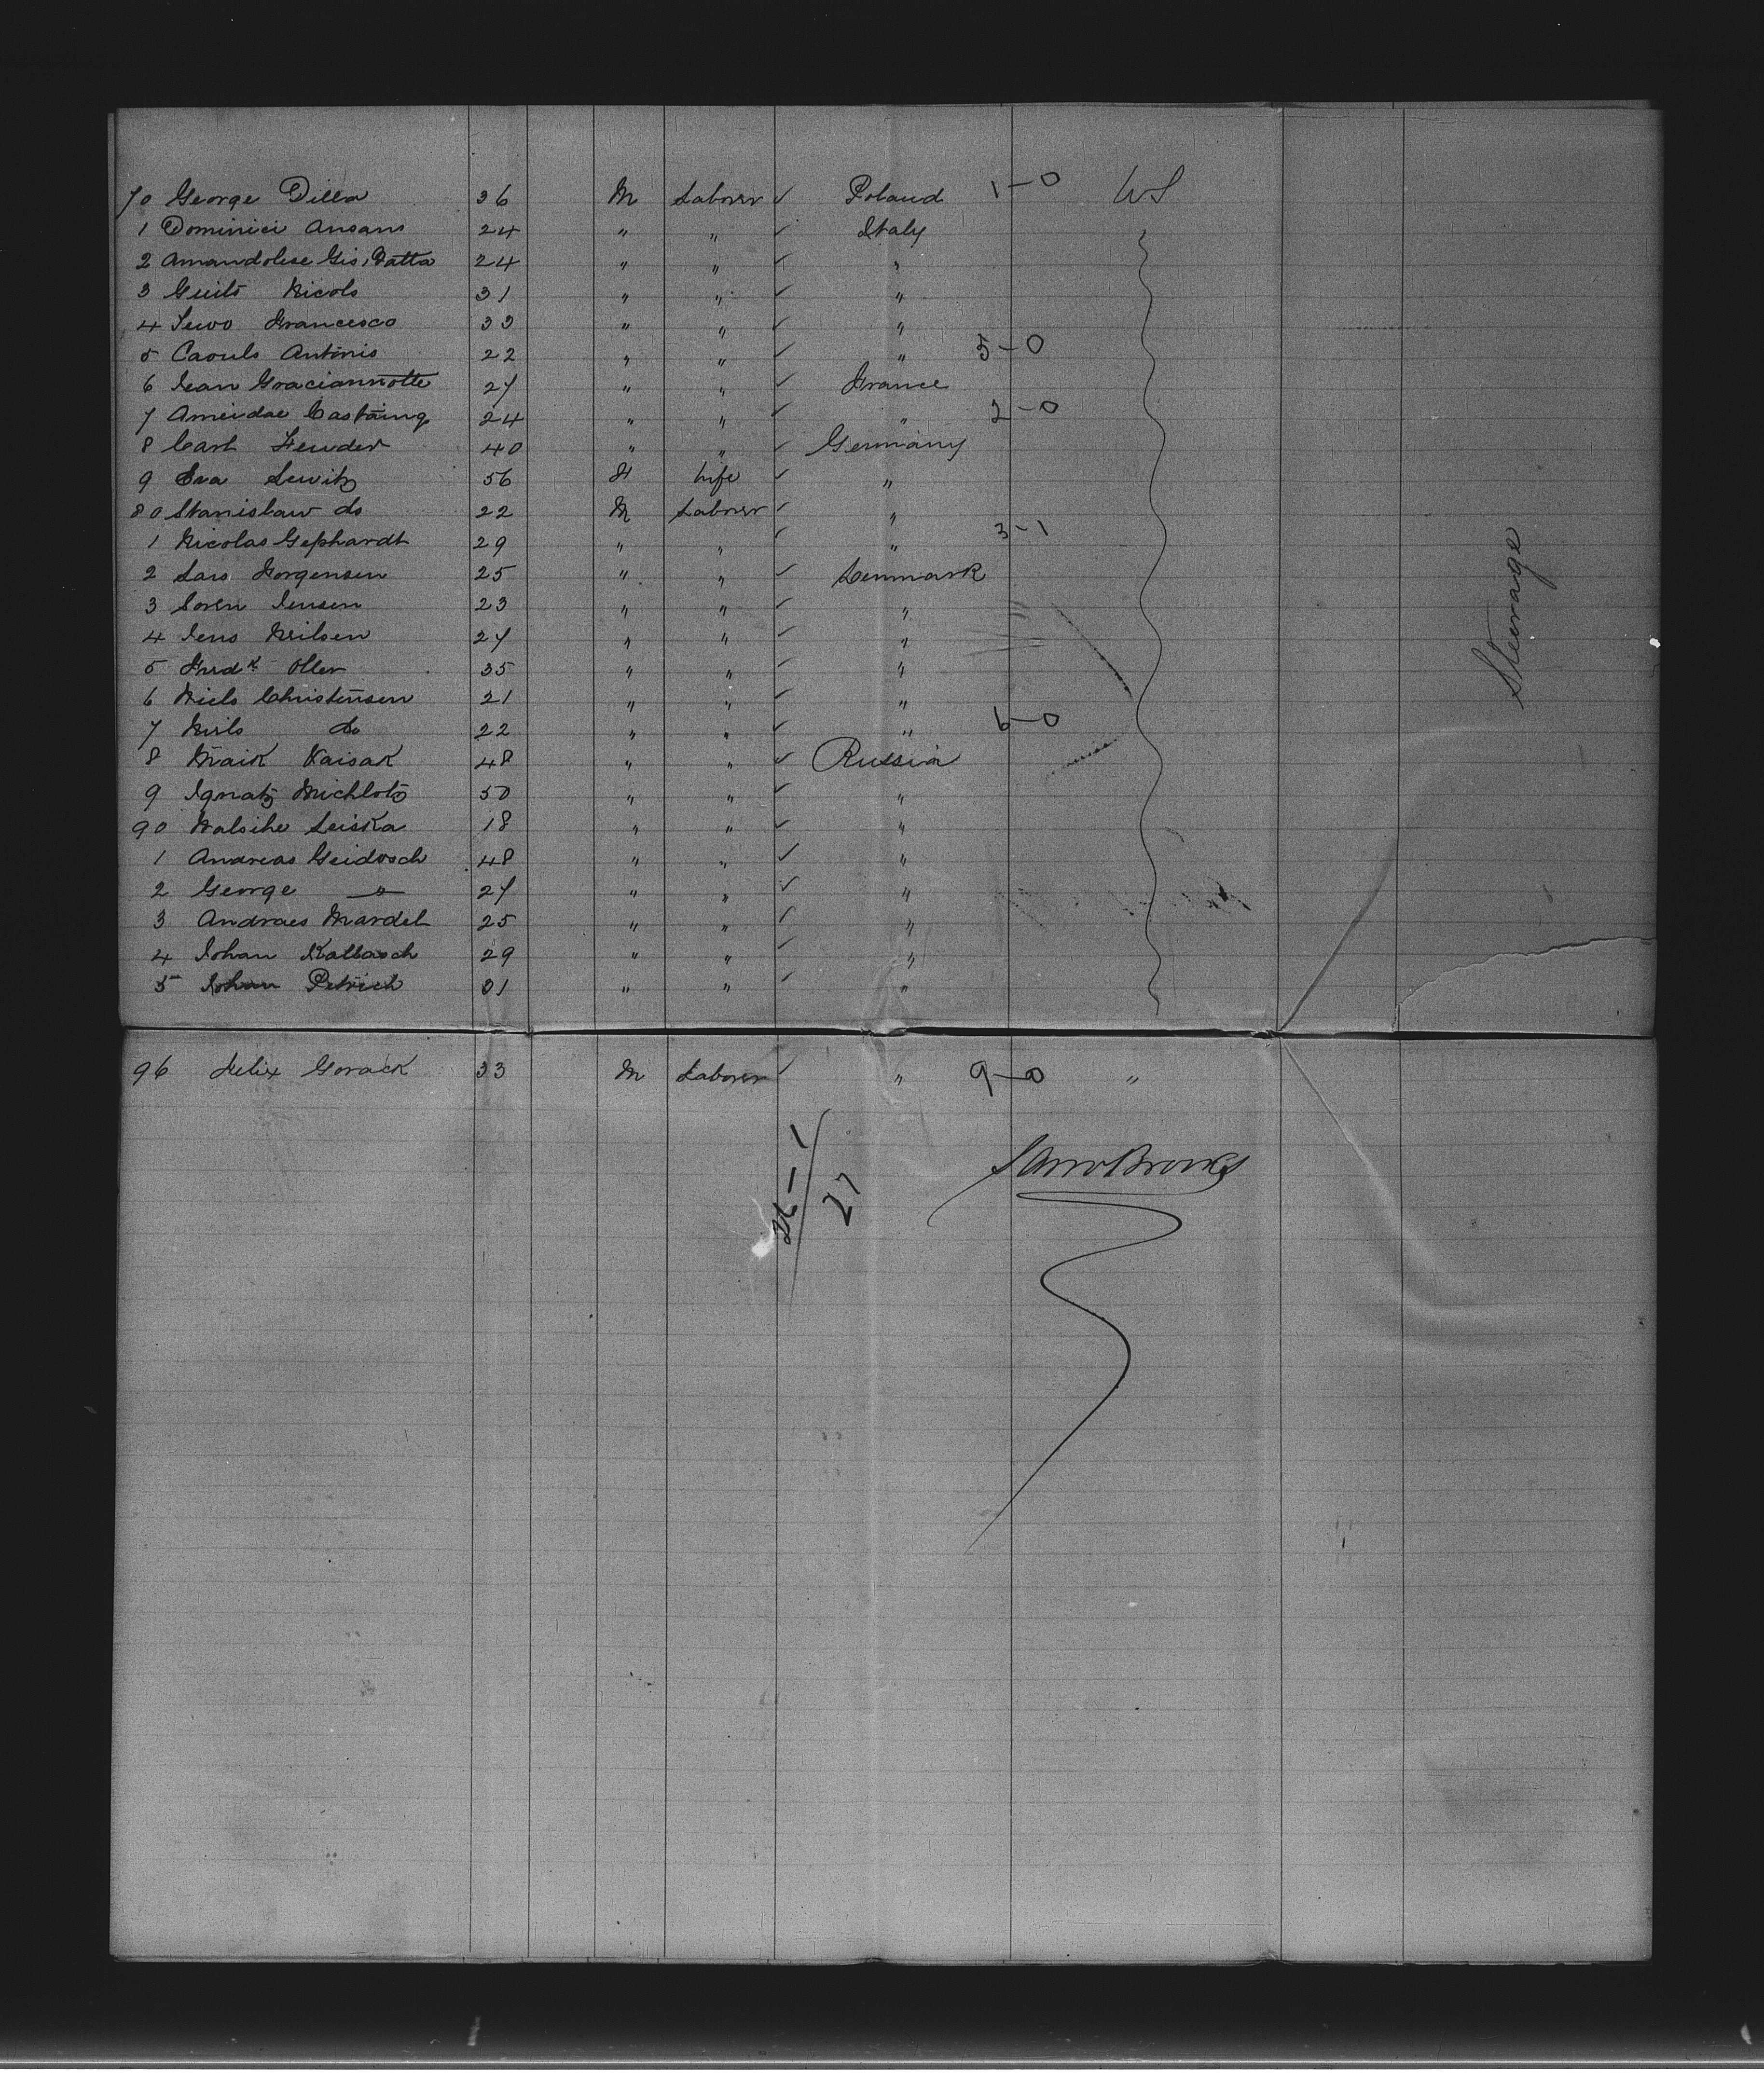 70 George Dilla 36 M Laborer ✓ Poland 1-0 US
1 Dominici Ansans 24 " " ✓ Italy
2 Amandolese Gio. Batta 24 " " ✓ "
3 Guits Nicols 31 " " ✓ "
4 Francesco 33 " " ✓ "
5 Caouls Antonio 22 " " ✓ " 5-0
6 Jean Graciannotte 27 " " ✓ France
7 Castaing 24 " " ✓ " 2-0
8 Carl Feuder 40 " " ✓ Germany
9 Eva Lewitz 56 F Wife ✓ "
80 Stanislaw do 22 M Laborer ✓ "
1 Nicolas Gephardt 29 " " ✓ " 3-1
2 Lars Jorgensen 25 " " ✓ Denmark
3 Soren Jensen 23 " " ✓ "
4 Jens Neilsen 27 " " ✓ "
5 Fredk Oller 35 " " ✓ "
6 Niels Christensen 21 " " ✓ "
7 Niels do 22 " " ✓ " 6-0
8 Maik Kaisak 48 " " ✓ Russia
9 Ignatz Michlotz 50 " " ✓ "
90 Leiska 18 " " ✓ "
1 Andreas Geidosch 48 " " ✓ "
2 George " 27 " " ✓ "
3 Andraes Mardel 25 " " ✓ "
4 Johan Kallasch 29 " " ✓ "
5 Johan Petrich 31 " " ✓ "
Steerage
96 Felix Gorack 33 M Laborer ✓ " 9-0 "
26-1
27